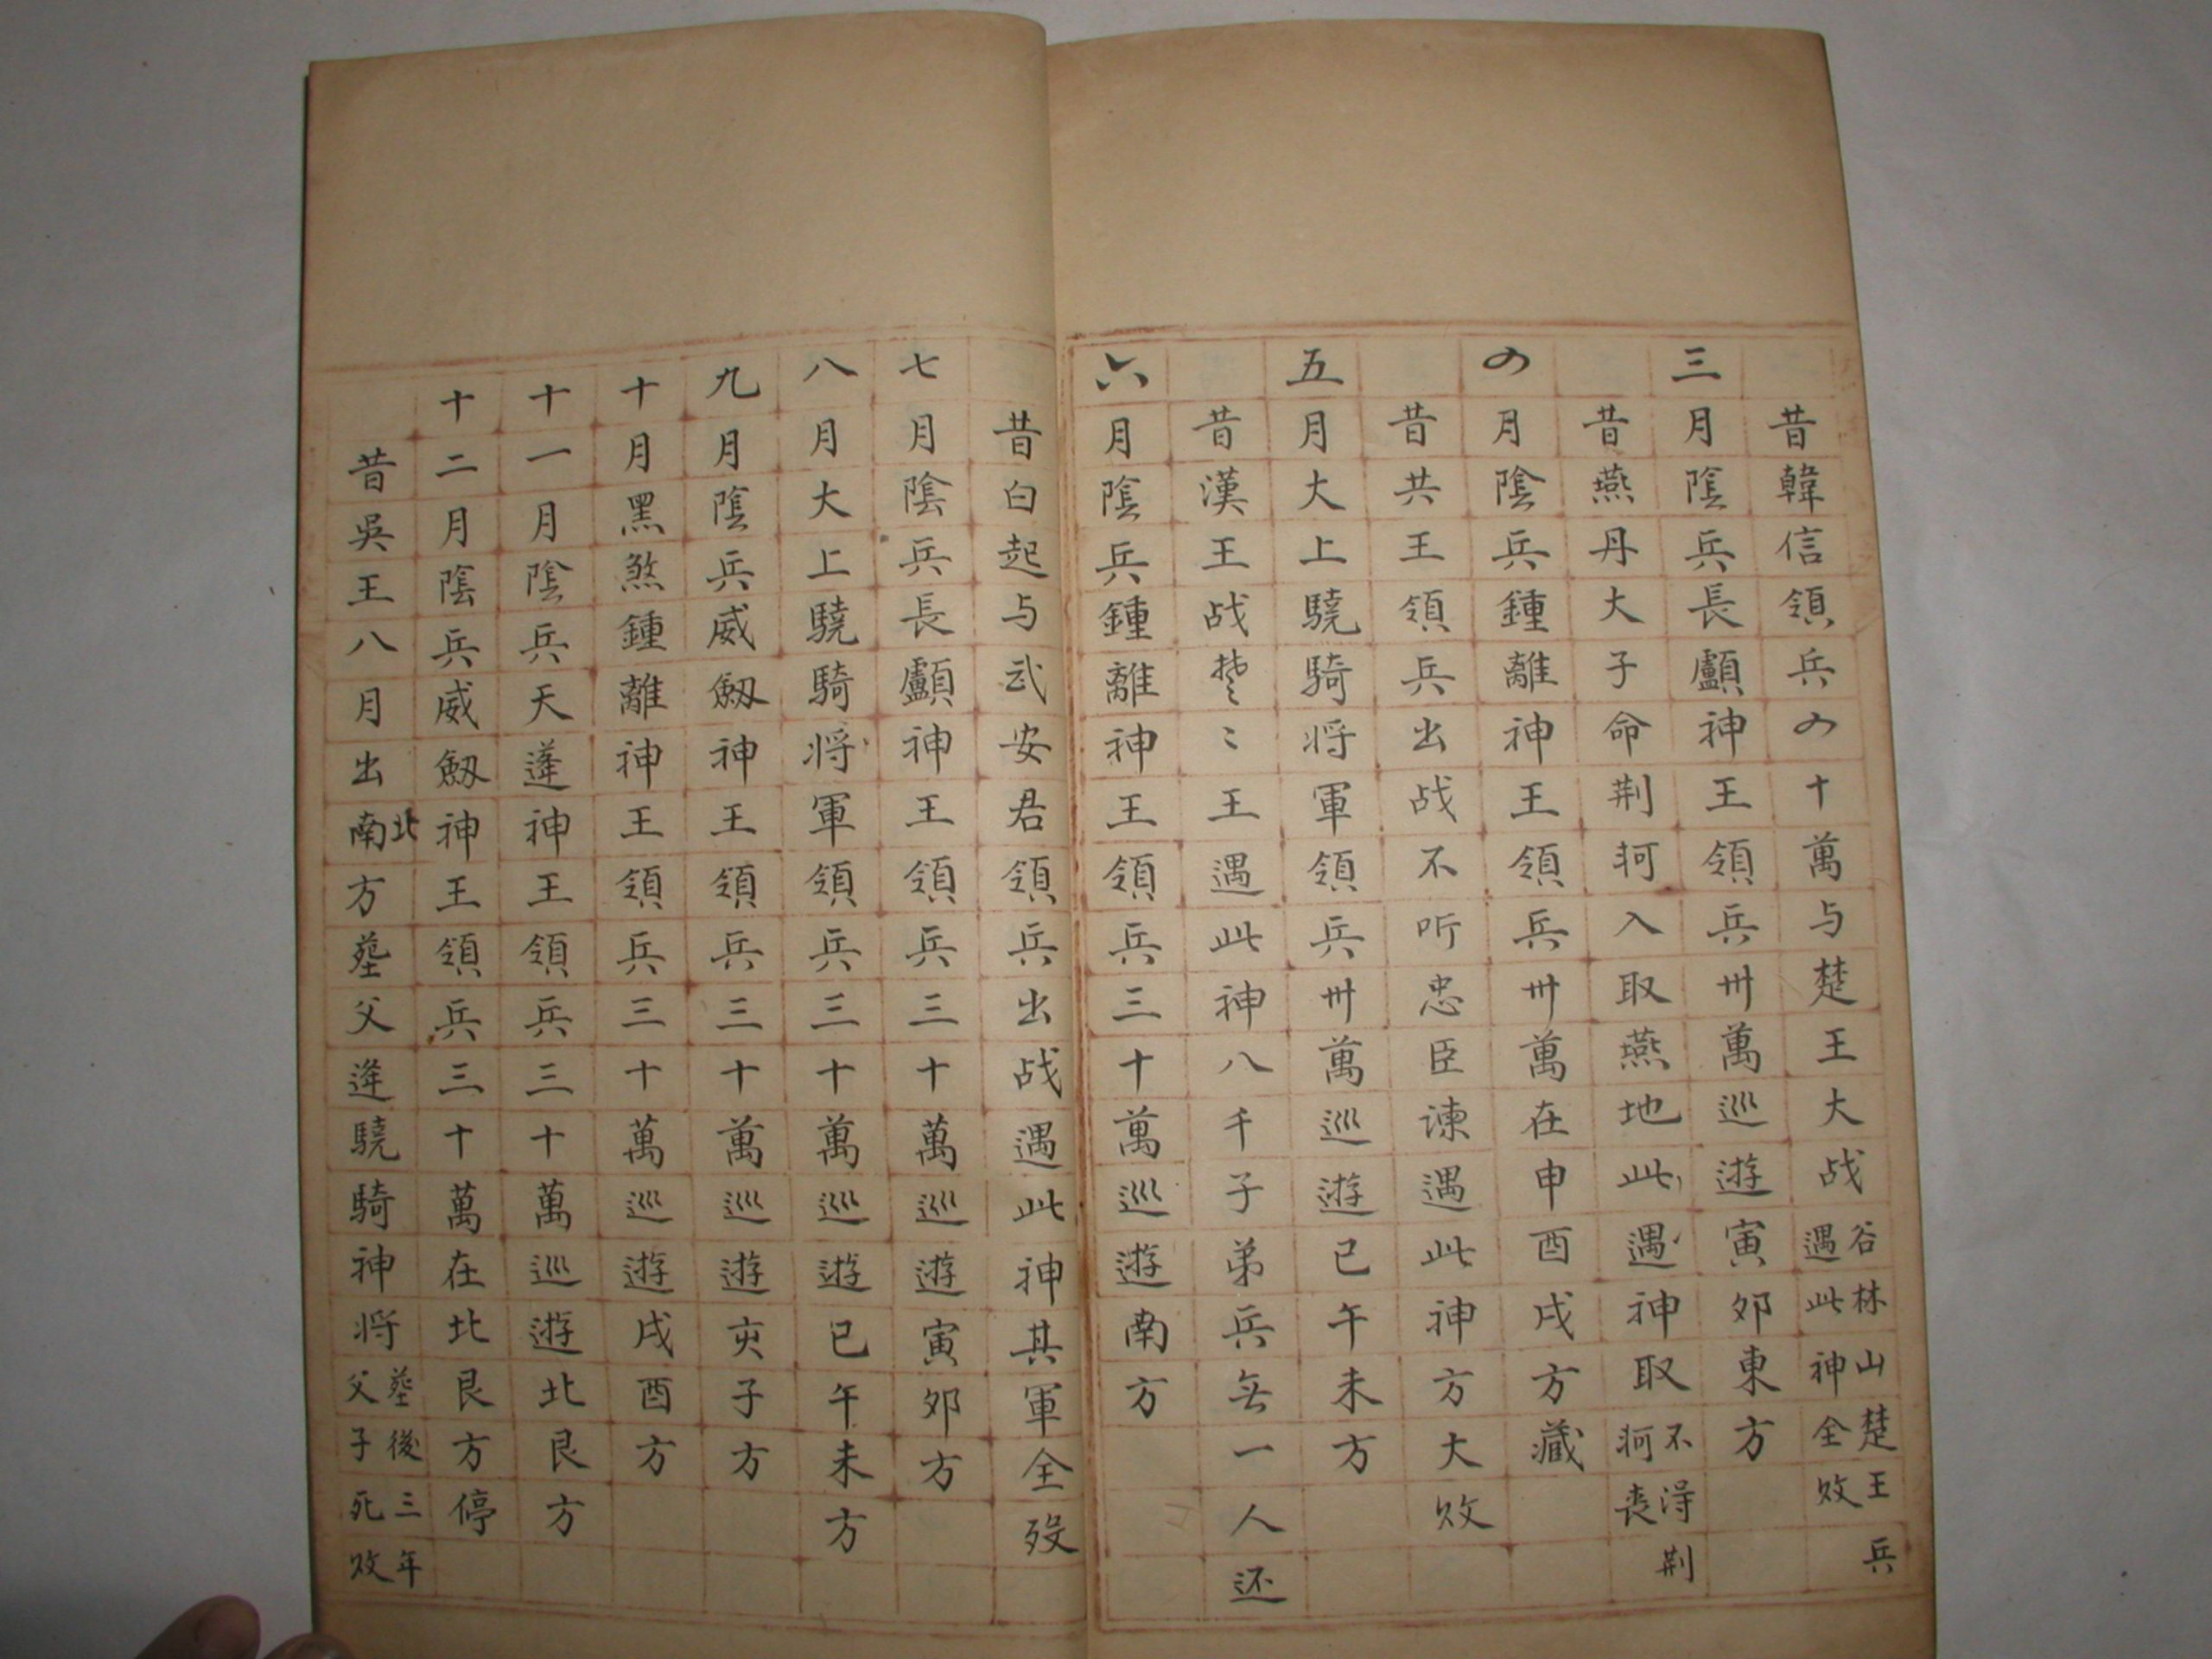 昔韓信領兵四十萬与楚王大战谷林山楚王兵遇此神全败
三月陰兵長顱神王領兵卅萬巡遊寅卯東方
昔燕丹太子命荆轲入取燕地此遇神取不得荆轲丧
四月陰兵鍾離神王領兵卅萬在申酉戌方藏
昔共王領兵出战不听忠臣谏遇此神方大败
五月大上驍騎将軍領兵卅萬巡遊巳午未方
昔漢王战楚〻王遇此神八千子弟兵無一人还
六月陰兵鍾離神王領兵三十萬巡遊南方
昔白起与武安君領兵出战遇此神其軍全殁
七月陰兵長顱神王領兵三十萬巡遊寅卯方
八月大上驍騎将軍領兵三十萬巡遊巳午未方
九月陰兵威劔神王領兵三十萬巡遊亥子方
十月黑煞鍾離神王領兵三十萬巡遊戌酉方
十一月陰兵天蓬神王領兵三十萬巡遊北艮方
十二月陰兵威劔神王領兵三十萬在北艮方停
昔吳王八月出北南方塟父逢驍騎神将塟後三年父子死败